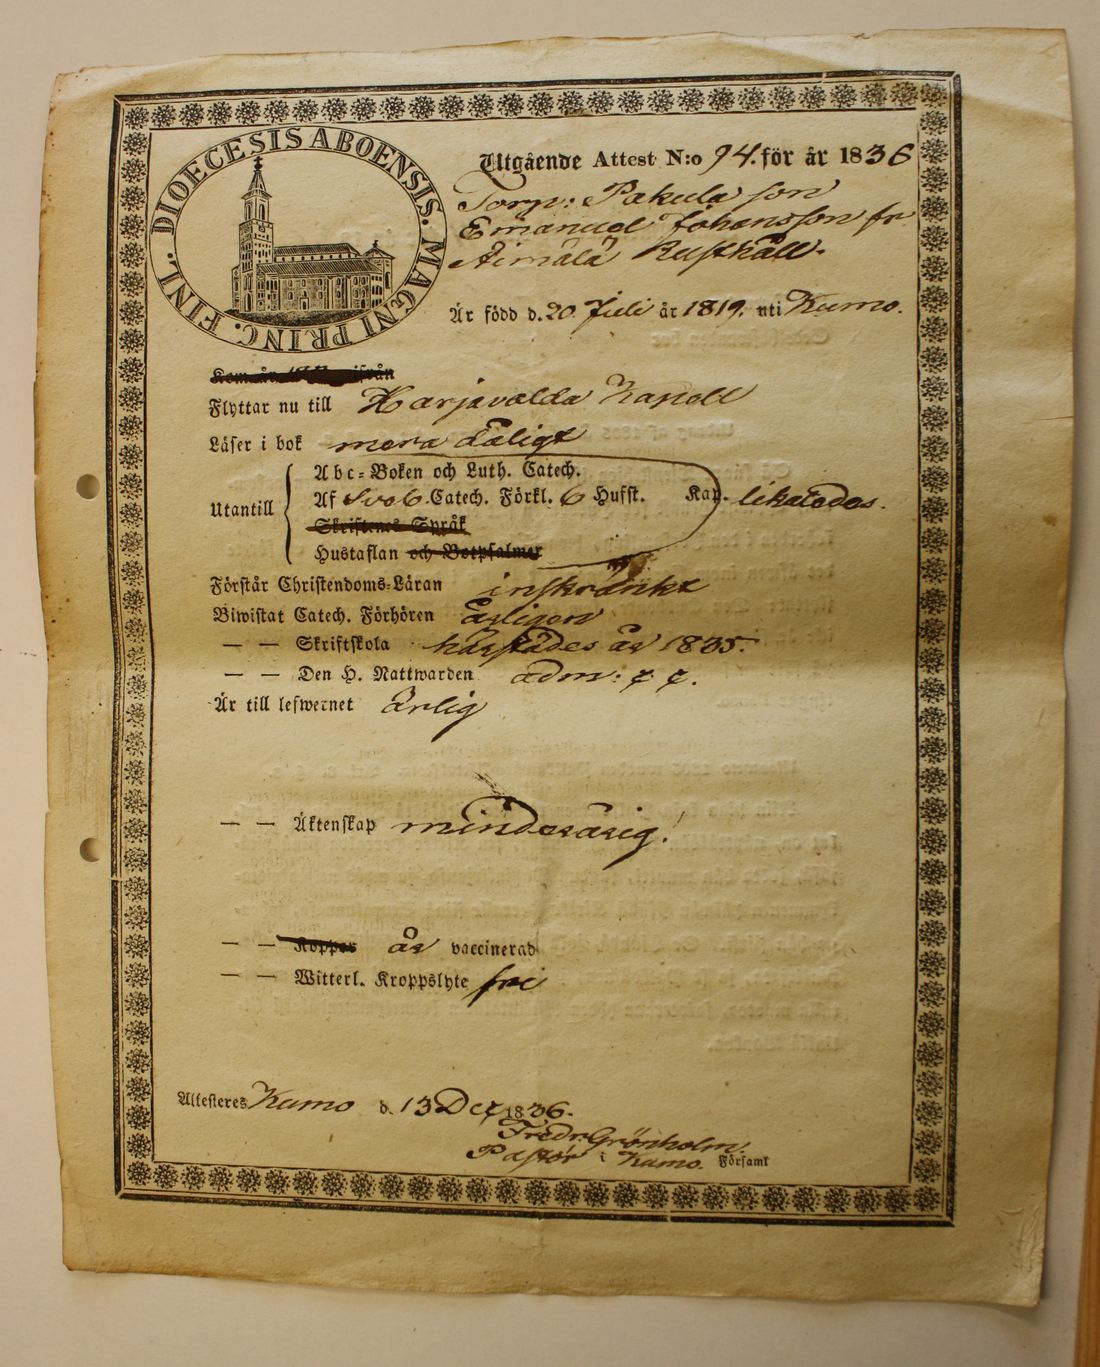 DIOECESIS ABOENSIS. MAGNI PRINC. FINL.
Utgående Attest N:o 94. för år 1836
Torp: Pakula son
Emanuel Johansson fr
Aimälä Rusthåll.
Är född d. 20 Juli år 1819. uti Kumo.
Kom år ifrån
Flyttar nu till Harjavalda Kapell
Läser i bok mera dåligt
Utantill
Abc-Boken och Luth. Catech.
Af Sveb. Catech. Förkl. 6 Hufst. Kap. likaledes.
Skriftenes Språk
Hustaflan och Botpsalmer
Förstår Christendoms-Läran inskränkt
Biwistat Catech. Förhören årligen
— — Skriftskola härstädes år 1835.
— — Den H. Nattwarden adm:
Är till lefwernet Ärlig
— — Äktenskap minderårig!
— — Koppor är vaccinerad
— — Witterl. Kroppslyte fri
Attesteres Kumo d. 13 Dec 1836.
Fredr Grönholm.
Pastor i Kumo. Församl